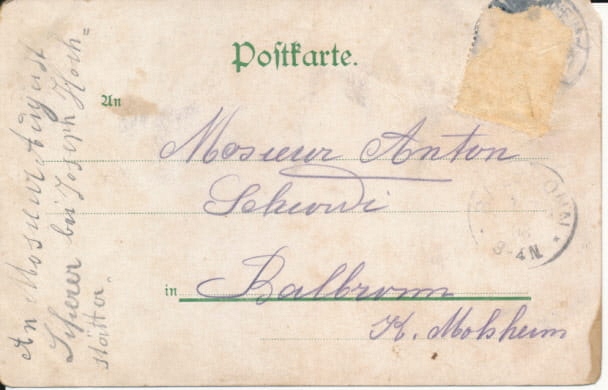 Postkarte.
An
Mosieur Anton
in Balbronn
K. Molsheim
An Mosieur August
Scherer bei Joseph Hoch=
stätter.
3-4N